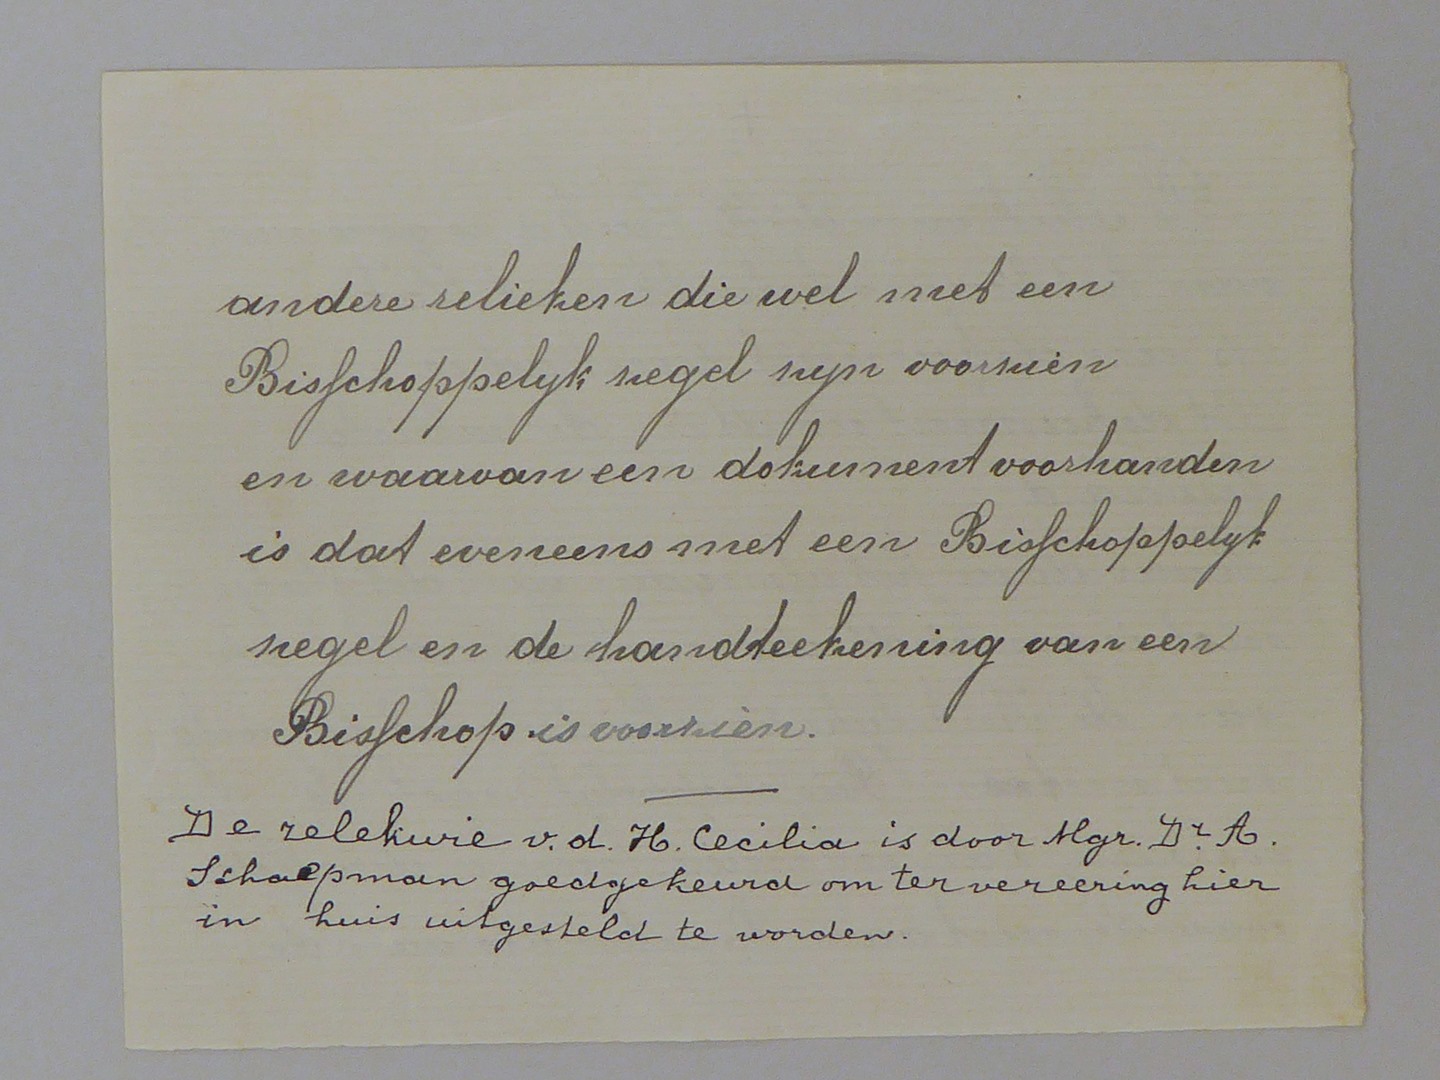 andere relieken die wel met een
Bisschoppelyk zegel zyn voorzien
en waarvan een dokument voorhanden
is dat eveneens met een Bisschoppelyk
zegel en de handteekening van een
Bisschop is voorzien.
De relekwie v.d. H. Cecilia is door Mgr. Dr. A.
Schaepman goedgekeurd om ter vereering hier
in huis uitgesteld te worden.